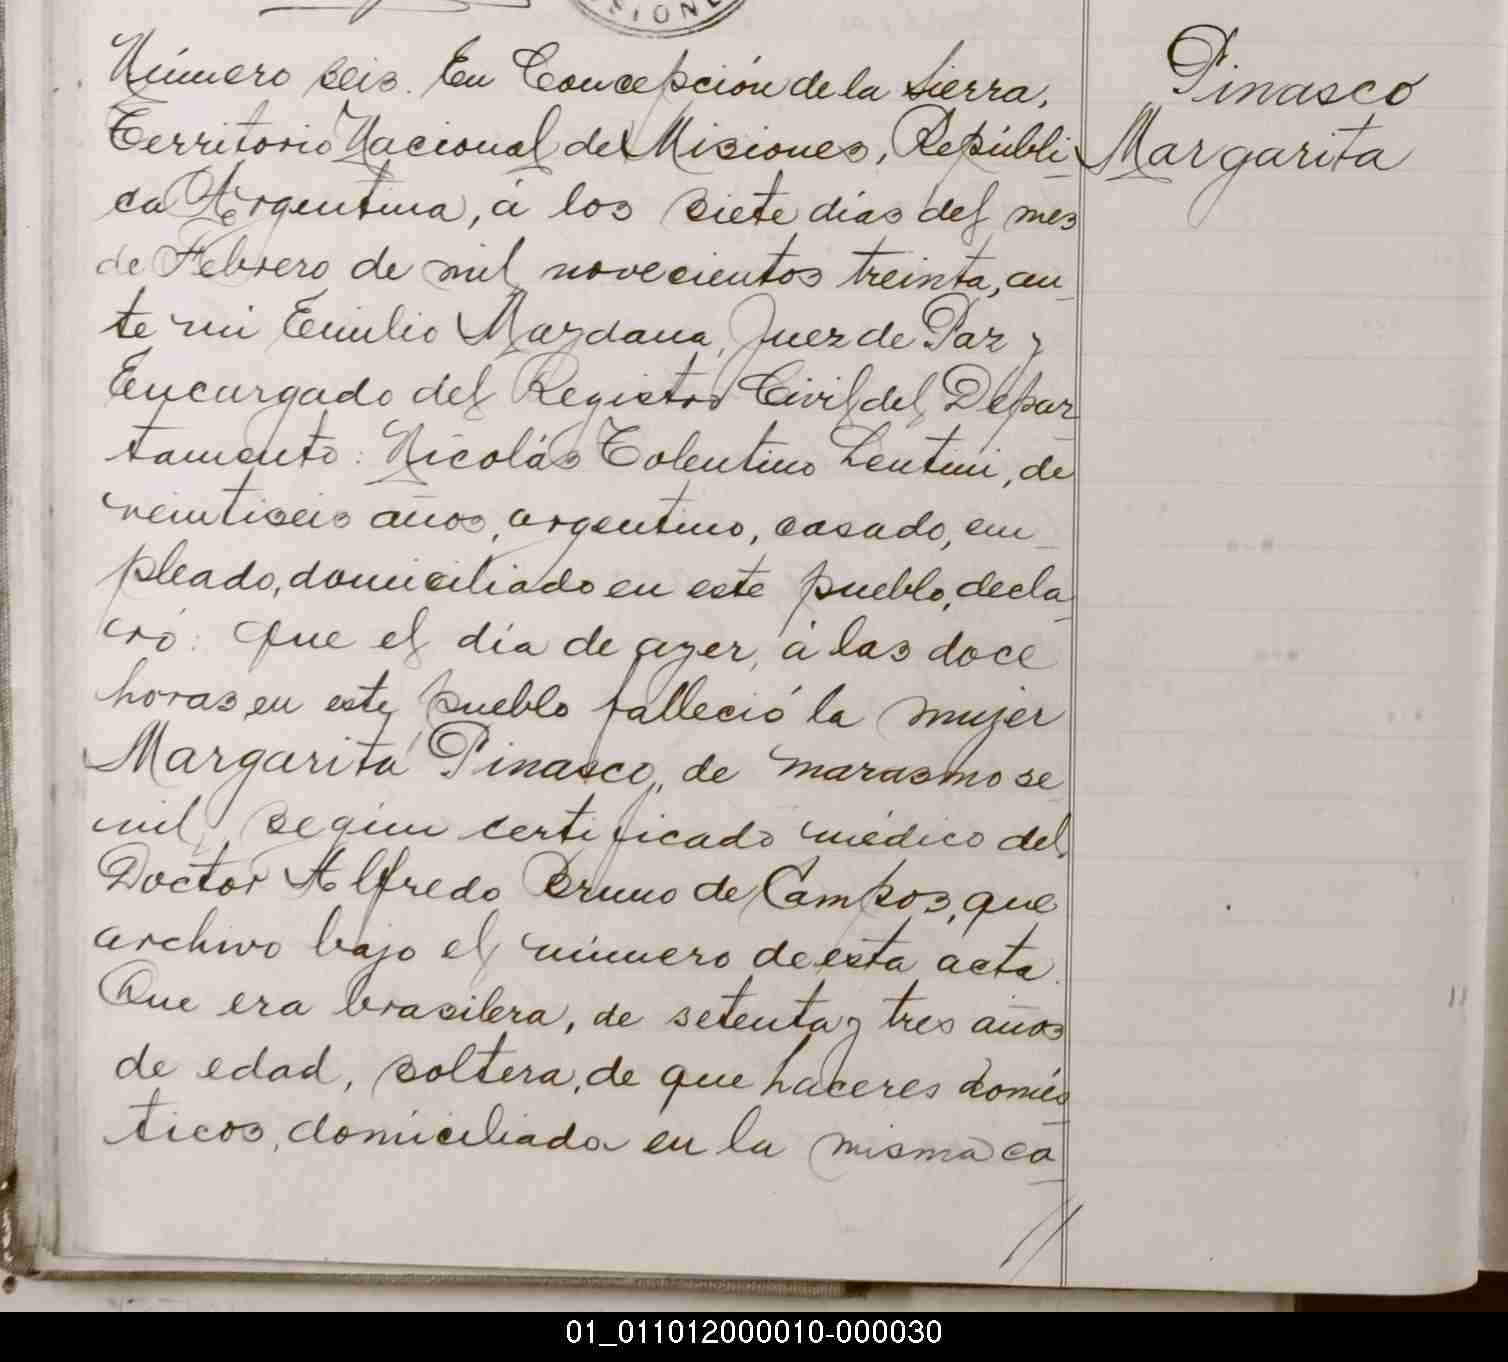 SIONE
Número seis. En Concepción de la Sierra,
Territorio Nacional de Misiones, Repúbli-
ca Argentina, á los siete días del mes
de Febrero de mil novecientos treinta, an-
te mi Emilio Mardana, Juez de Paz y
Encargado del Registro Civil del Depar-
tamento: Nicolás Tolentino Lentini, de
veintiseis años, argentino, casado, em-
pleado, domiciliado en este pueblo, decla-
ró: Que el día de ayer, á las doce
horas en este pueblo falleció la mujer
Margarita Pinasco, de marasmo se-
nil, según certificado médico del
Doctor Alfredo Bruno de Campos, que
archivo bajo el número de esta acta.
Que era brasilera, de setenta y tres años
de edad, soltera, de que haceres domés-
ticos, domiciliada en la misma ca-
//
Pinasco
Margarita
01_011012000010-000030